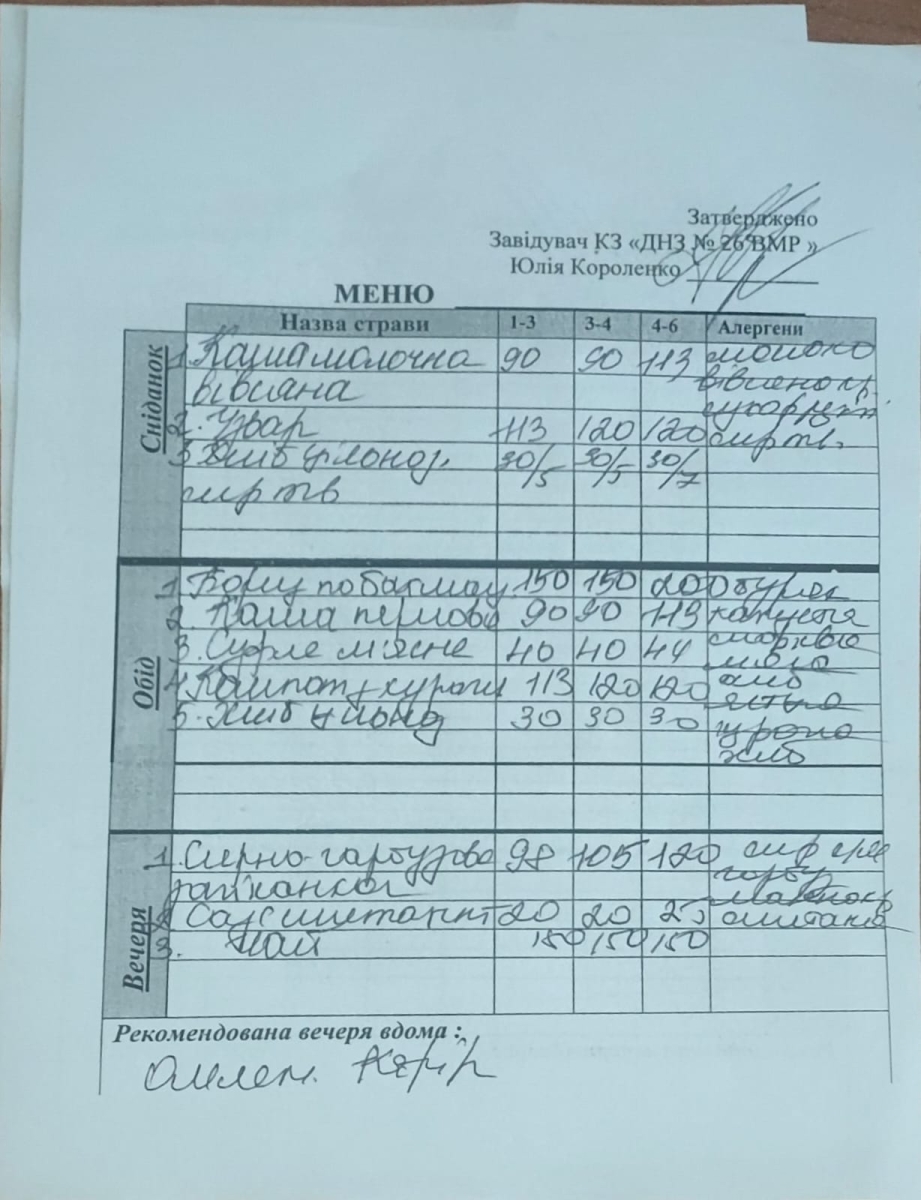 Затверджено
Завідувач КЗ «ДНЗ № 26 ВМР »
Юлія Короленко
МЕНЮ
Назва страви 1-3 3-4 4-6 Алергени
Сніданок
1. Каша молочна 90 90 113 молоко
вівсяна
2. Узвар 113 120 120
3 Хліб цільноз. 30/5 30/5 30/7
сир тв
Обід
1. Борщ по 150 150 200 буряк
2. Каша перлова 90 90 113 капуста
3. Суфле м'ясне 40 40 44
4. Компот з кураги 113 120 120
5. Хліб цільноз 30 30 30
хліб
Вечеря
1. Сирно-гарбузова 98 105 120 сир
запіканка
2. Соус сметан 20 20 25 сметана
3. Чай 150 150 150
Рекомендована вечеря вдома :
Омлет. Кефір